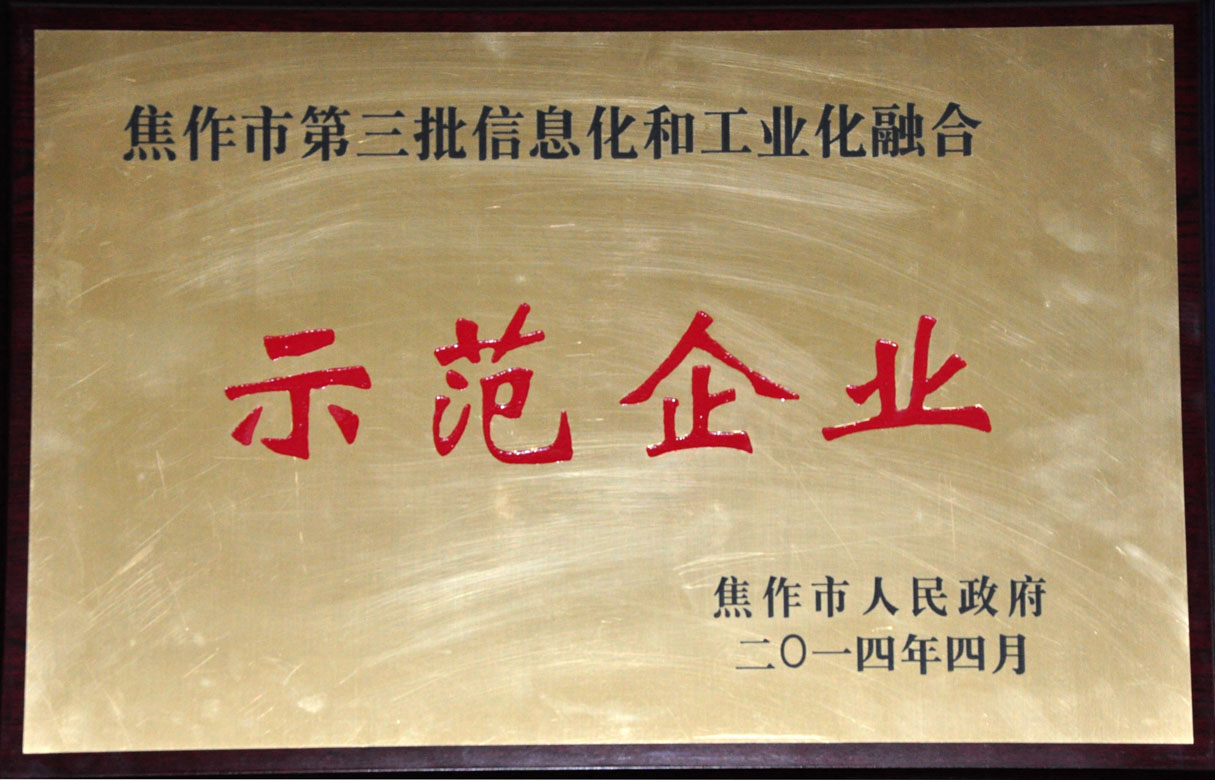 焦作市第三批信息化和工业化融合
示范企业
焦作市人民政府
二〇一四年四月